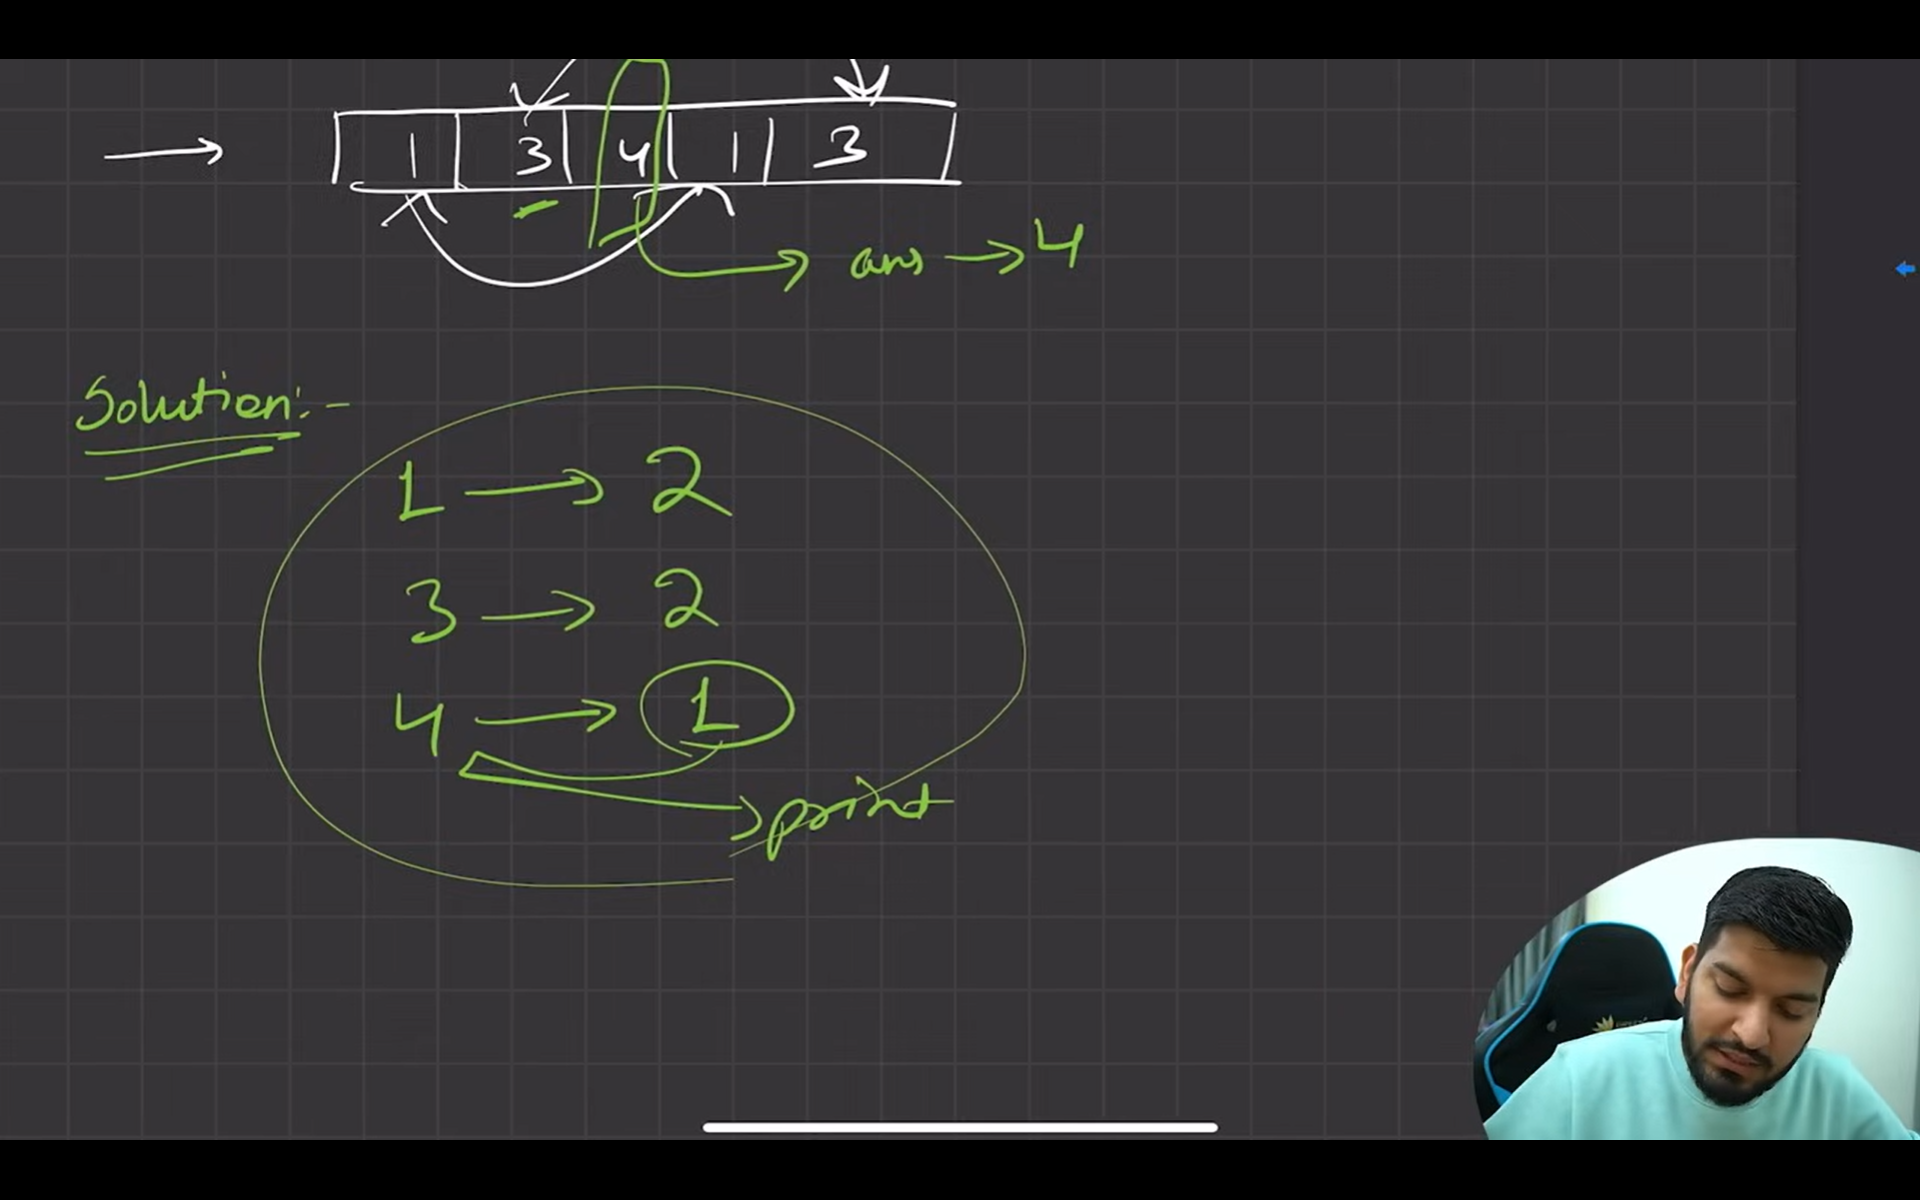 → 1 3 4 1 3
ans → 4
Solution:-
1 → 2
3 → 2
4 → 1
print